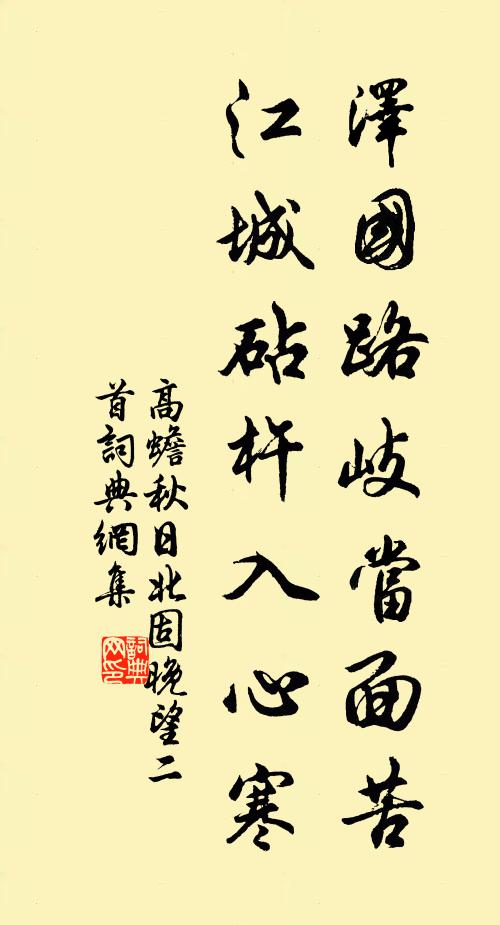 澤國路歧當面苦
江城砧杵入心寒
高蟾秋日北固晚望二
首詞典網集
詞典网印